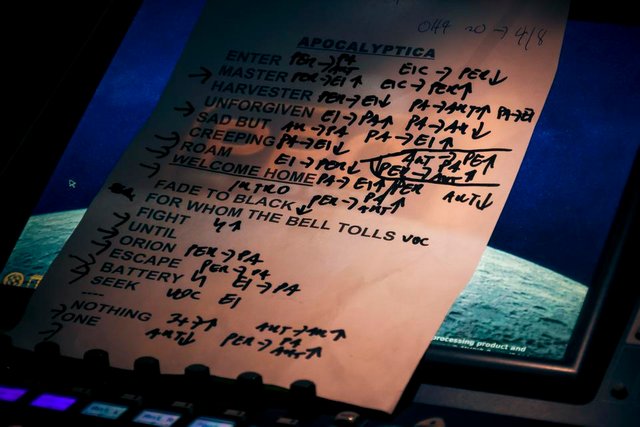 APOCALYPTICA
ENTER PER→PA EIC→PER↓
MASTER PER→EI↑ EIC→PER↑
HARVESTER PER→EI↓ PA→ANT↑ PA→EI
UNFORGIVEN EI→PA↑ PA→AN↓
SAD BUT AN→PA PA→EI↑
CREEPING PA→EI↓ ANT→PA PE↑
ROAM EI→PER↓ PER→ANT↑
WELCOME HOME PA→EI↑ PER ANT↓
INTRO
FADE TO BLACK PER→PA ANT↑
FOR WHOM THE BELL TOLLS VOC
FIGHT 4↑
UNTIL
ORION PER→PA
ESCAPE PER→PA
BATTERY 4 EI→PA
SEEK VOC EI
----
NOTHING ANT→AN↑
ONE ANT↓ PER→PA ANT↑
processing product and